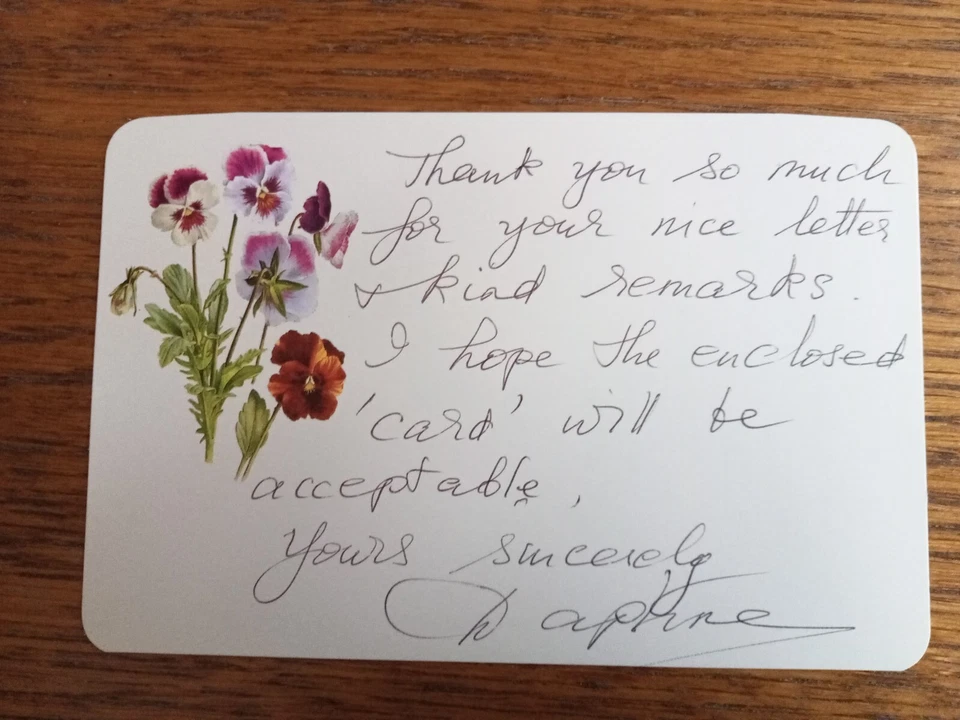 Thank you so much
for your nice letter
& kind remarks.
I hope the enclosed
'card' will be
acceptable,
Yours sincerely
Daphne